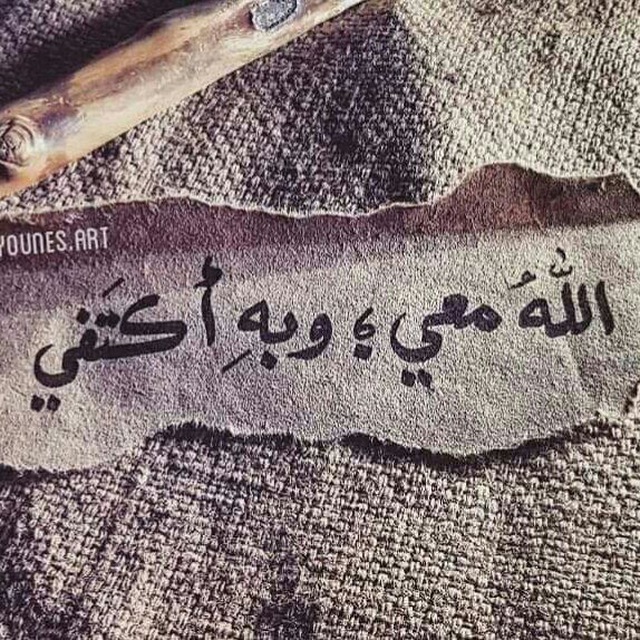 YOUNES.ART
اللّٰهُ معي ؛ وبهِ أكتَفي